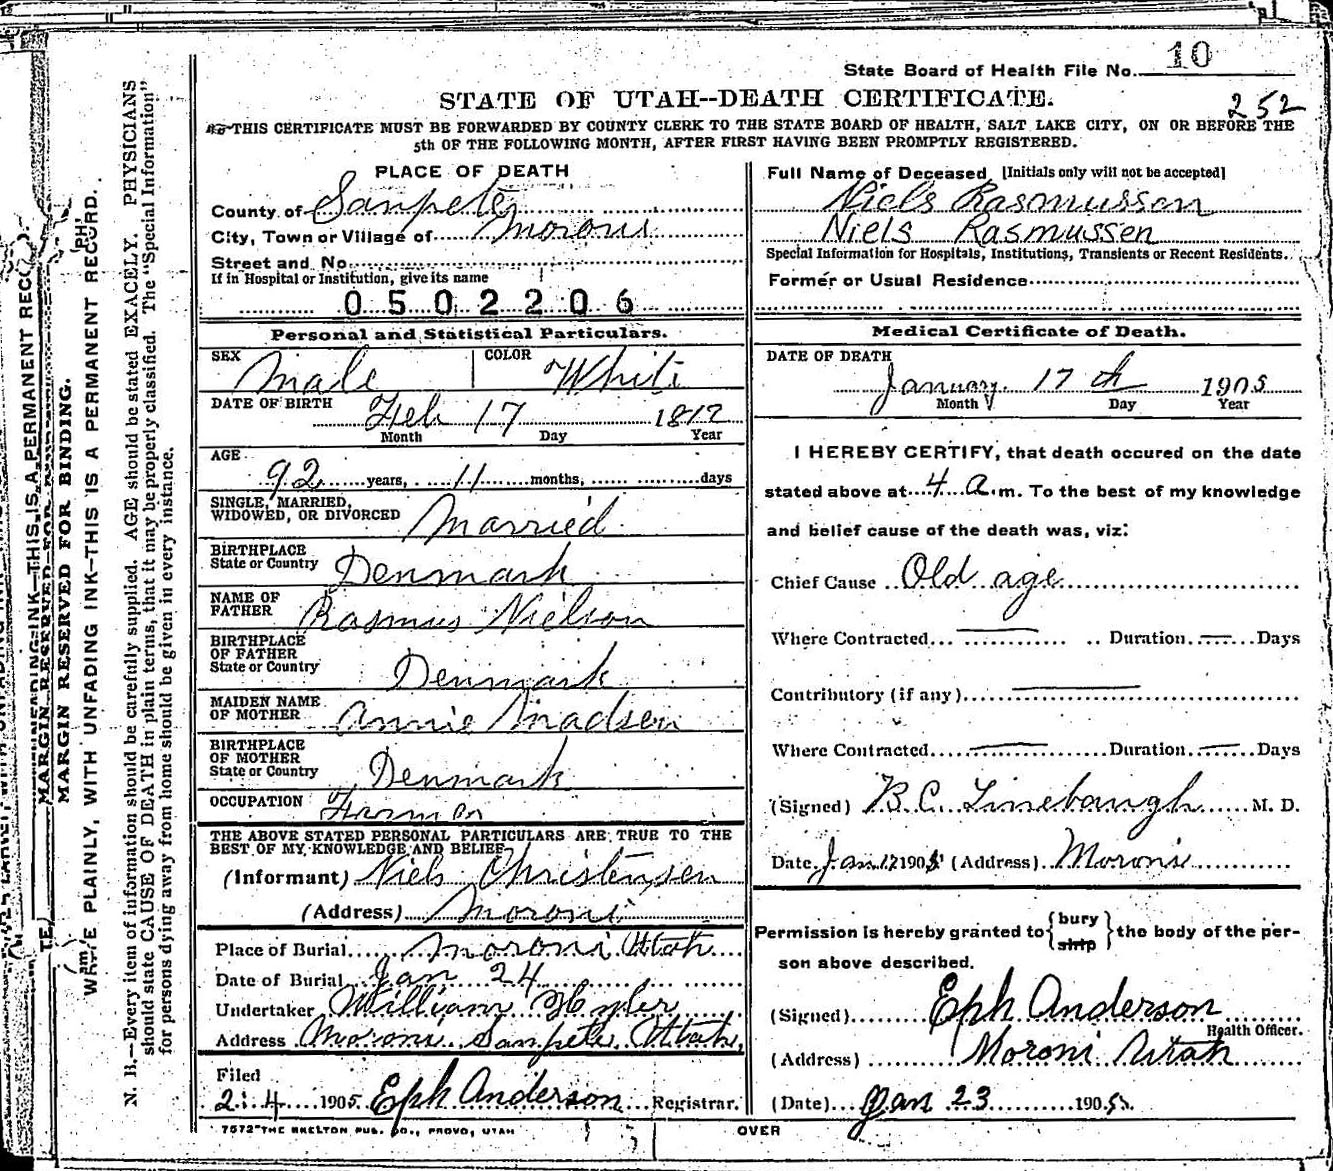 State Board of Health File No. 10
STATE OF UTAH--DEATH CERTIFICATE.
252
THIS CERTIFICATE MUST BE FORWARDED BY COUNTY CLERK TO THE STATE BOARD OF HEALTH, SALT LAKE CITY, ON OR BEFORE THE
5th OF THE FOLLOWING MONTH, AFTER FIRST HAVING BEEN PROMPTLY REGISTERED.
PLACE OF DEATH
County of Sanpete
City, Town or Village of Moroni
Street and No.
If in Hospital or Institution, give its name
0502206
Personal and Statistical Particulars.
SEX Male COLOR White
DATE OF BIRTH Feb 17 1812
Month Day Year
AGE 92 years, 11 months, days
SINGLE, MARRIED,
WIDOWED, OR DIVORCED Married
BIRTHPLACE
State or Country Denmark
NAME OF
FATHER Rasmus Nielson
BIRTHPLACE
OF FATHER
State or Country Denmark
MAIDEN NAME
OF MOTHER Annie Madsen
BIRTHPLACE
OF MOTHER
State or Country Denmark
OCCUPATION Farmer
THE ABOVE STATED PERSONAL PARTICULARS ARE TRUE TO THE
BEST OF MY KNOWLEDGE AND BELIEF
(Informant) Niels Christensen
(Address) Moroni
Place of Burial Moroni Utah
Date of Burial Jan 24
Undertaker William
Address Moroni Sanpete Utah
Filed
2-4 1905 Eph Anderson Registrar.
7572 THE SKELTON PUB. CO., PROVO, UTAH
OVER
Full Name of Deceased [Initials only will not be accepted]
Niels Rasmussen
Niels Rasmussen
Special Information for Hospitals, Institutions, Transients or Recent Residents.
Former or Usual Residence
Medical Certificate of Death.
DATE OF DEATH
January 17th 1905
Month Day Year
I HEREBY CERTIFY, that death occured on the date
stated above at 4 a.m. To the best of my knowledge
and belief cause of the death was, viz:
Chief Cause Old age
Where Contracted Duration Days
Contributory (if any)
Where Contracted Duration Days
(Signed) B.C. Linebaugh M. D.
Date Jan 17 1905 (Address) Moroni
Permission is hereby granted to {bury ship} the body of the per-
son above described.
(Signed) Eph Anderson
Health Officer.
(Address) Moroni Utah
(Date) Jan 23 1905.
MARGIN RESERVED FOR BINDING.
WRITE PLAINLY, WITH UNFADING INK—THIS IS A PERMANENT RECORD.
N. B.—Every item of information should be carefully supplied. AGE should be stated EXACELY. PHYSICIANS
should state CAUSE OF DEATH in plain terms, that it may be properly classified. The "Special Information"
for persons dying away from home should be given in every instance.